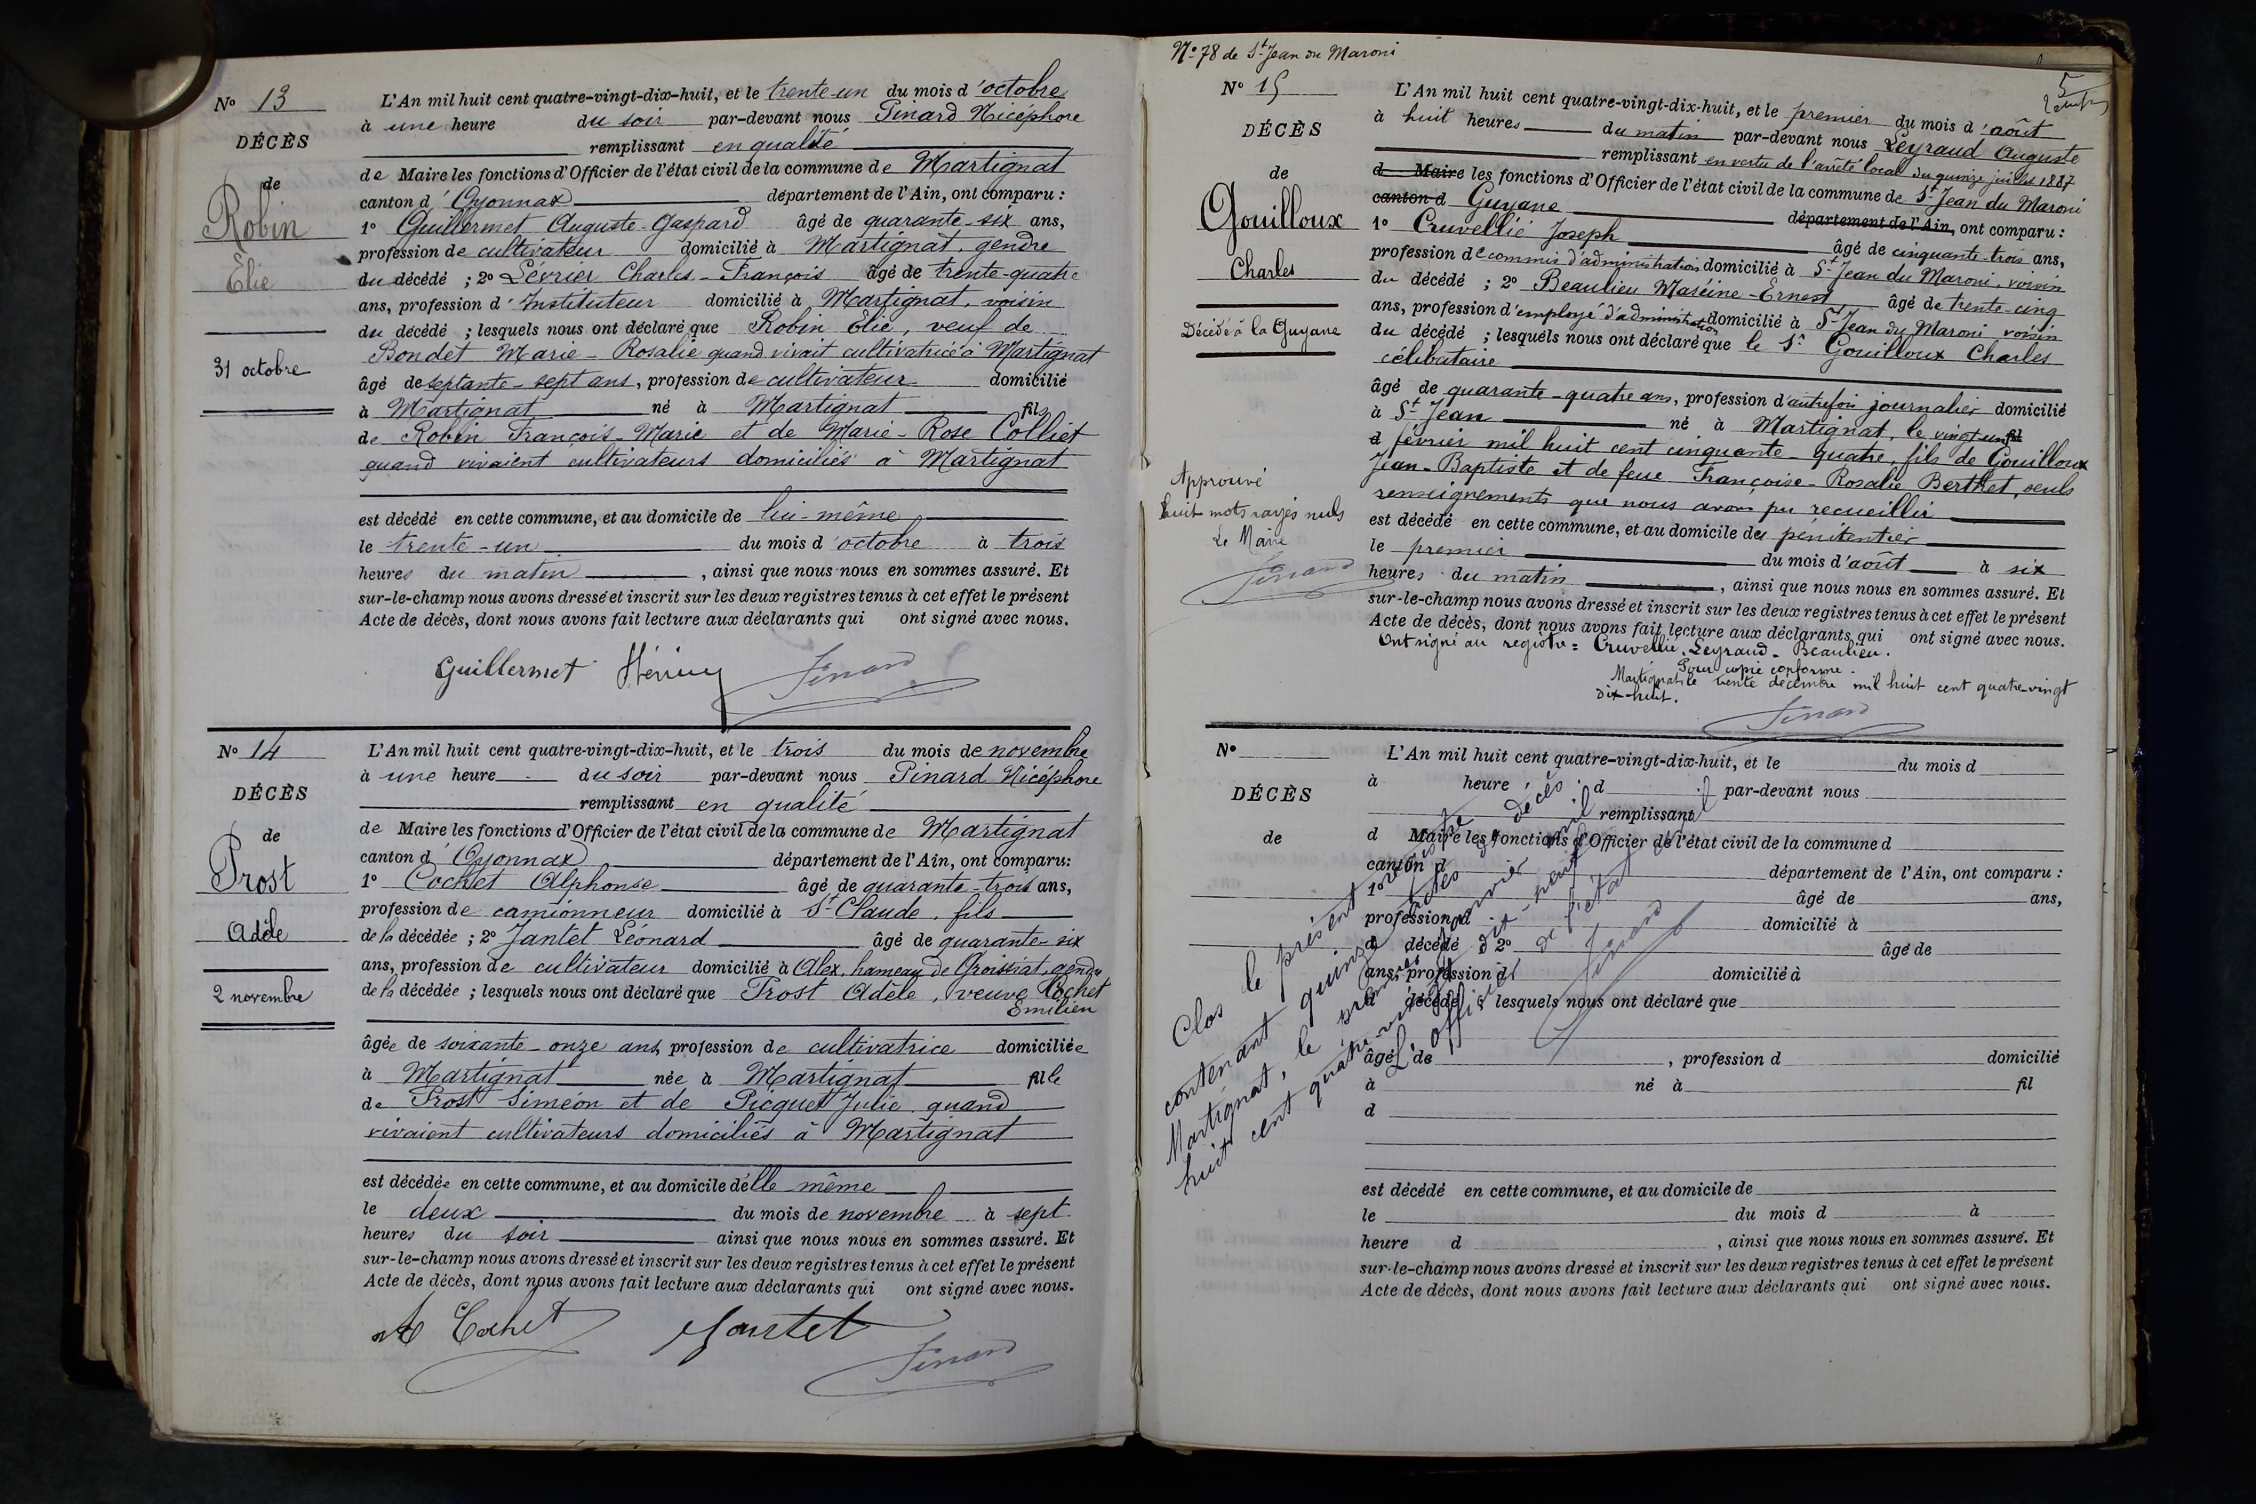 No 13
DÉCÈS
de
Robin
Élie
31 octobre
L'An mil huit cent quatre-vingt-dix-huit, et le trente-un du mois d'octobre
à une heure du soir par-devant nous Pinard Nicéphore
remplissant en qualité
de Maire les fonctions d'Officier de l'état civil de la commune de Martignat
canton d'Oyonnax département de l'Ain, ont comparu :
1o Guillermet Auguste-Gaspard âgé de quarante-six ans,
profession de cultivateur domicilié à Martignat, gendre
du décédé ; 2o Lévrier Charles-François âgé de trente-quatre
ans, profession d'Instituteur domicilié à Martignat, voisin
du décédé ; lesquels nous ont déclaré que Robin Élie, veuf de
Bondet Marie-Rosalie quand vivait cultivatrice à Martignat
âgé de septante-sept ans, profession de cultivateur domicilié
à Martignat né à Martignat fils
de Robin François-Marie et de Marie-Rose Colliet
quand vivaient cultivateurs domiciliés à Martignat
est décédé en cette commune, et au domicile de lui-même
le trente-un du mois d'octobre à trois
heures du matin, ainsi que nous nous en sommes assuré. Et
sur-le-champ nous avons dressé et inscrit sur les deux registres tenus à cet effet le présent
Acte de décès, dont nous avons fait lecture aux déclarants qui ont signé avec nous.
Guillermet Pinard
No 14
DÉCÈS
de
Prost
Adèle
2 novembre
L'An mil huit cent quatre-vingt-dix-huit, et le trois du mois de novembre
à une heure du soir par-devant nous Pinard Nicéphore
remplissant en qualité
de Maire les fonctions d'Officier de l'état civil de la commune de Martignat
canton d'Oyonnax département de l'Ain, ont comparu :
1o Cochet Alphonse âgé de quarante-trois ans,
profession de camionneur domicilié à St Claude, fils
de la décédée ; 2o Jantet Léonard âgé de quarante-six
ans, profession de cultivateur domicilié à Alex, hameau de Groissiat, gendre
de la décédée ; lesquels nous ont déclaré que Prost Adèle, veuve Cochet
Emilien
âgée de soixante-onze ans, profession de cultivatrice domiciliée
à Martignat née à Martignat fille
de Prost Siméon et de Picquet Julie quand
vivaient cultivateurs domiciliés à Martignat
est décédée en cette commune, et au domicile d'elle même
le deux du mois de novembre à sept
heures du soir ainsi que nous nous en sommes assuré. Et
sur-le-champ nous avons dressé et inscrit sur les deux registres tenus à cet effet le présent
Acte de décès, dont nous avons fait lecture aux déclarants qui ont signé avec nous.
A Cochet Jantet
Pinard
No 78 de St Jean du Maroni
5
No 15
DÉCÈS
de
Gouilloux
Charles
Décédé à la Guyane
Approuvé
huit mots rayés nuls
Le Maire
Pinard
L'An mil huit cent quatre-vingt-dix-huit, et le premier du mois d'août
à huit heures du matin par-devant nous Leyraud Auguste
remplissant en vertu de l'arrêté local du quinze juillet 1887
d Maire les fonctions d'Officier de l'état civil de la commune de St Jean du Maroni
canton d Guyane département de l'Ain, ont comparu :
1o Cruvellié Joseph âgé de cinquante-trois ans,
profession de commis d'administration domicilié à St Jean du Maroni, voisin
du décédé ; 2o Beaulieu Maxime-Ernest âgé de trente-cinq
ans, profession d'employé d'administration domicilié à St Jean du Maroni voisin
du décédé ; lesquels nous ont déclaré que le Sr Gouilloux Charles
célibataire
âgé de quarante-quatre ans, profession d'autrefois journalier domicilié
à St Jean né à Martignat, le vingt un fil
d février mil huit cent cinquante-quatre, fils de Gouilloux
Jean-Baptiste et de feue Françoise-Rosalie Berthet, seuls
renseignements que nous avons pu recueillir
est décédé en cette commune, et au domicile des pénitentier
le premier du mois d'août à six
heures du matin, ainsi que nous nous en sommes assuré. Et
sur-le-champ nous avons dressé et inscrit sur les deux registres tenus à cet effet le présent
Acte de décès, dont nous avons fait lecture aux déclarants qui ont signé avec nous.
Ont signé au registre = Cruvellié, Leyraud - Beaulieu.
Pour copie conforme.
Martignat le trente décembre mil huit cent quatre-vingt
dix-huit.
Pinard
No
DÉCÈS
de
L'An mil huit cent quatre-vingt-dix-huit, et le du mois d
à heure d par-devant nous
remplissant
d Maire les fonctions d'Officier de l'état civil de la commune d
canton d département de l'Ain, ont comparu :
1o âgé de ans,
profession d domicilié à
d décédé ; 2o âgé de
ans, profession d domicilié à
d décédé ; lesquels nous ont déclaré que
âgé de , profession d domicilié
à né à fil
d
est décédé en cette commune, et au domicile de
le du mois d à
heure d , ainsi que nous nous en sommes assuré. Et
sur-le-champ nous avons dressé et inscrit sur les deux registres tenus à cet effet le présent
Acte de décès, dont nous avons fait lecture aux déclarants qui ont signé avec nous.
Clos le présent registre de décès
contenant quinze actes
Martignat, le premier janvier mil
huit cent quatre-vingt dix-neuf
L'officier de l'état civil
Pinard